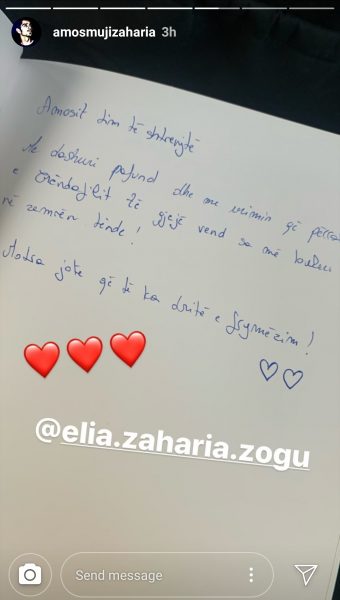 amosmujizaharia 3h
Amosit tim të shtrenjtë
Me dashuri pafund dhe me urimin që
e Trëndafilit të gjejë vend sa më
në zemrën tënde!
Motra jote që të ka dritë e frymëzim!
@elia.zaharia.zogu
Send message